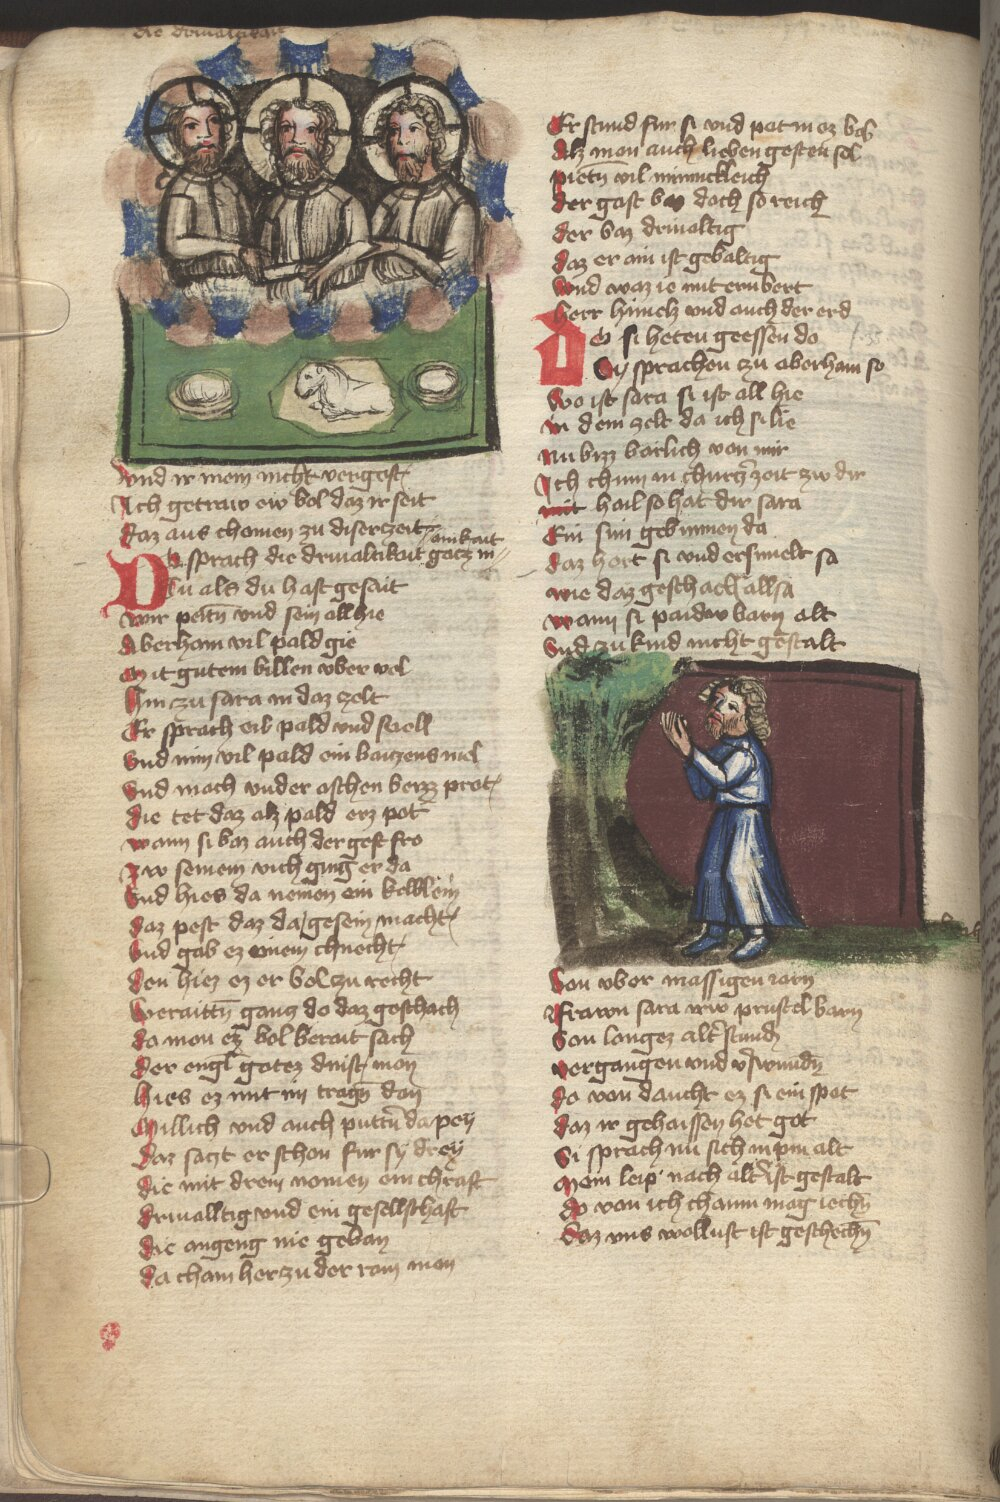 die drivaltikait
Vnd ir mein nicht vergest
Ich getraw ew wol daz ir seit
Daz aus chomen zu diser zeit
Do sprach die drivaltikait gotz in ainkait
Tu als du hast gesait
Wir peitn̄ vnd sein all hie
Aberham vil pald gie
Mit gutem willen vber vel
Hin zu sara in daz zelt
Er sprach eil pald vnd snell
Vnd nim vil pald ein waitzens mel
Vnd mach vnder aschen werz prot
Die tet daz alz pald erz pot
Wann si waz auch der gest fro
Zw seinem vich ging er da
Vnd hies da nemen ein kelblein
Daz pest daz da gesein macht
Vnd gab ez einem chnecht
Den hiez ez er wol zu recht
Beraittn̄ gang do daz geschach
Da man ez wol berait sach
Der engl gotez dinst man
Hies ez mit im tragn̄ dan
Millich vnd auch puttn̄ da pey
Daz satzt er schon fur sy drey
Die mit drein namen ein chraft
Drivalltig vnd ein gesellschaft
Die angeng nie gewan
Da cham her zu der rain man
Er stund fur si vnd pot in ez bas
Alz man auch lieben gesten sol
Pietn̄ vil minnickleich
Der gast waz doch so reich
Der waz drivaltig
Daz er ain ist gewaltig
Vnd waz ie mit ern wert
Herr himelz vnd auch der erd
Do si heten geessen do
Sy sprachen zu aberham so
Wo ist sara si ist all hie
In dem zelt da ich si lie
Nu wizz warlich von mir
Ich chum in churtzer zeit zw dir
Mit hail so hat dir sara
Ein sun gewunnen da
Daz hort si vnd ersmielt sa
Wie daz geschach allsa
Wann si paidew warn alt
Vnd zu kind nicht gestalt
Von vber massigen iarn
Frawn sara irw prustel warn
Von langez alters stund
Vergangen vnd verswundn̄
Da von daucht ez si ein spot
Daz ir gehaissen het got
Si sprach nu sich in pin alt
Mein leip nach alter ist gestalt
Da von ich chaum mag iechn̄
Daz vns wollust ist geschechn̄